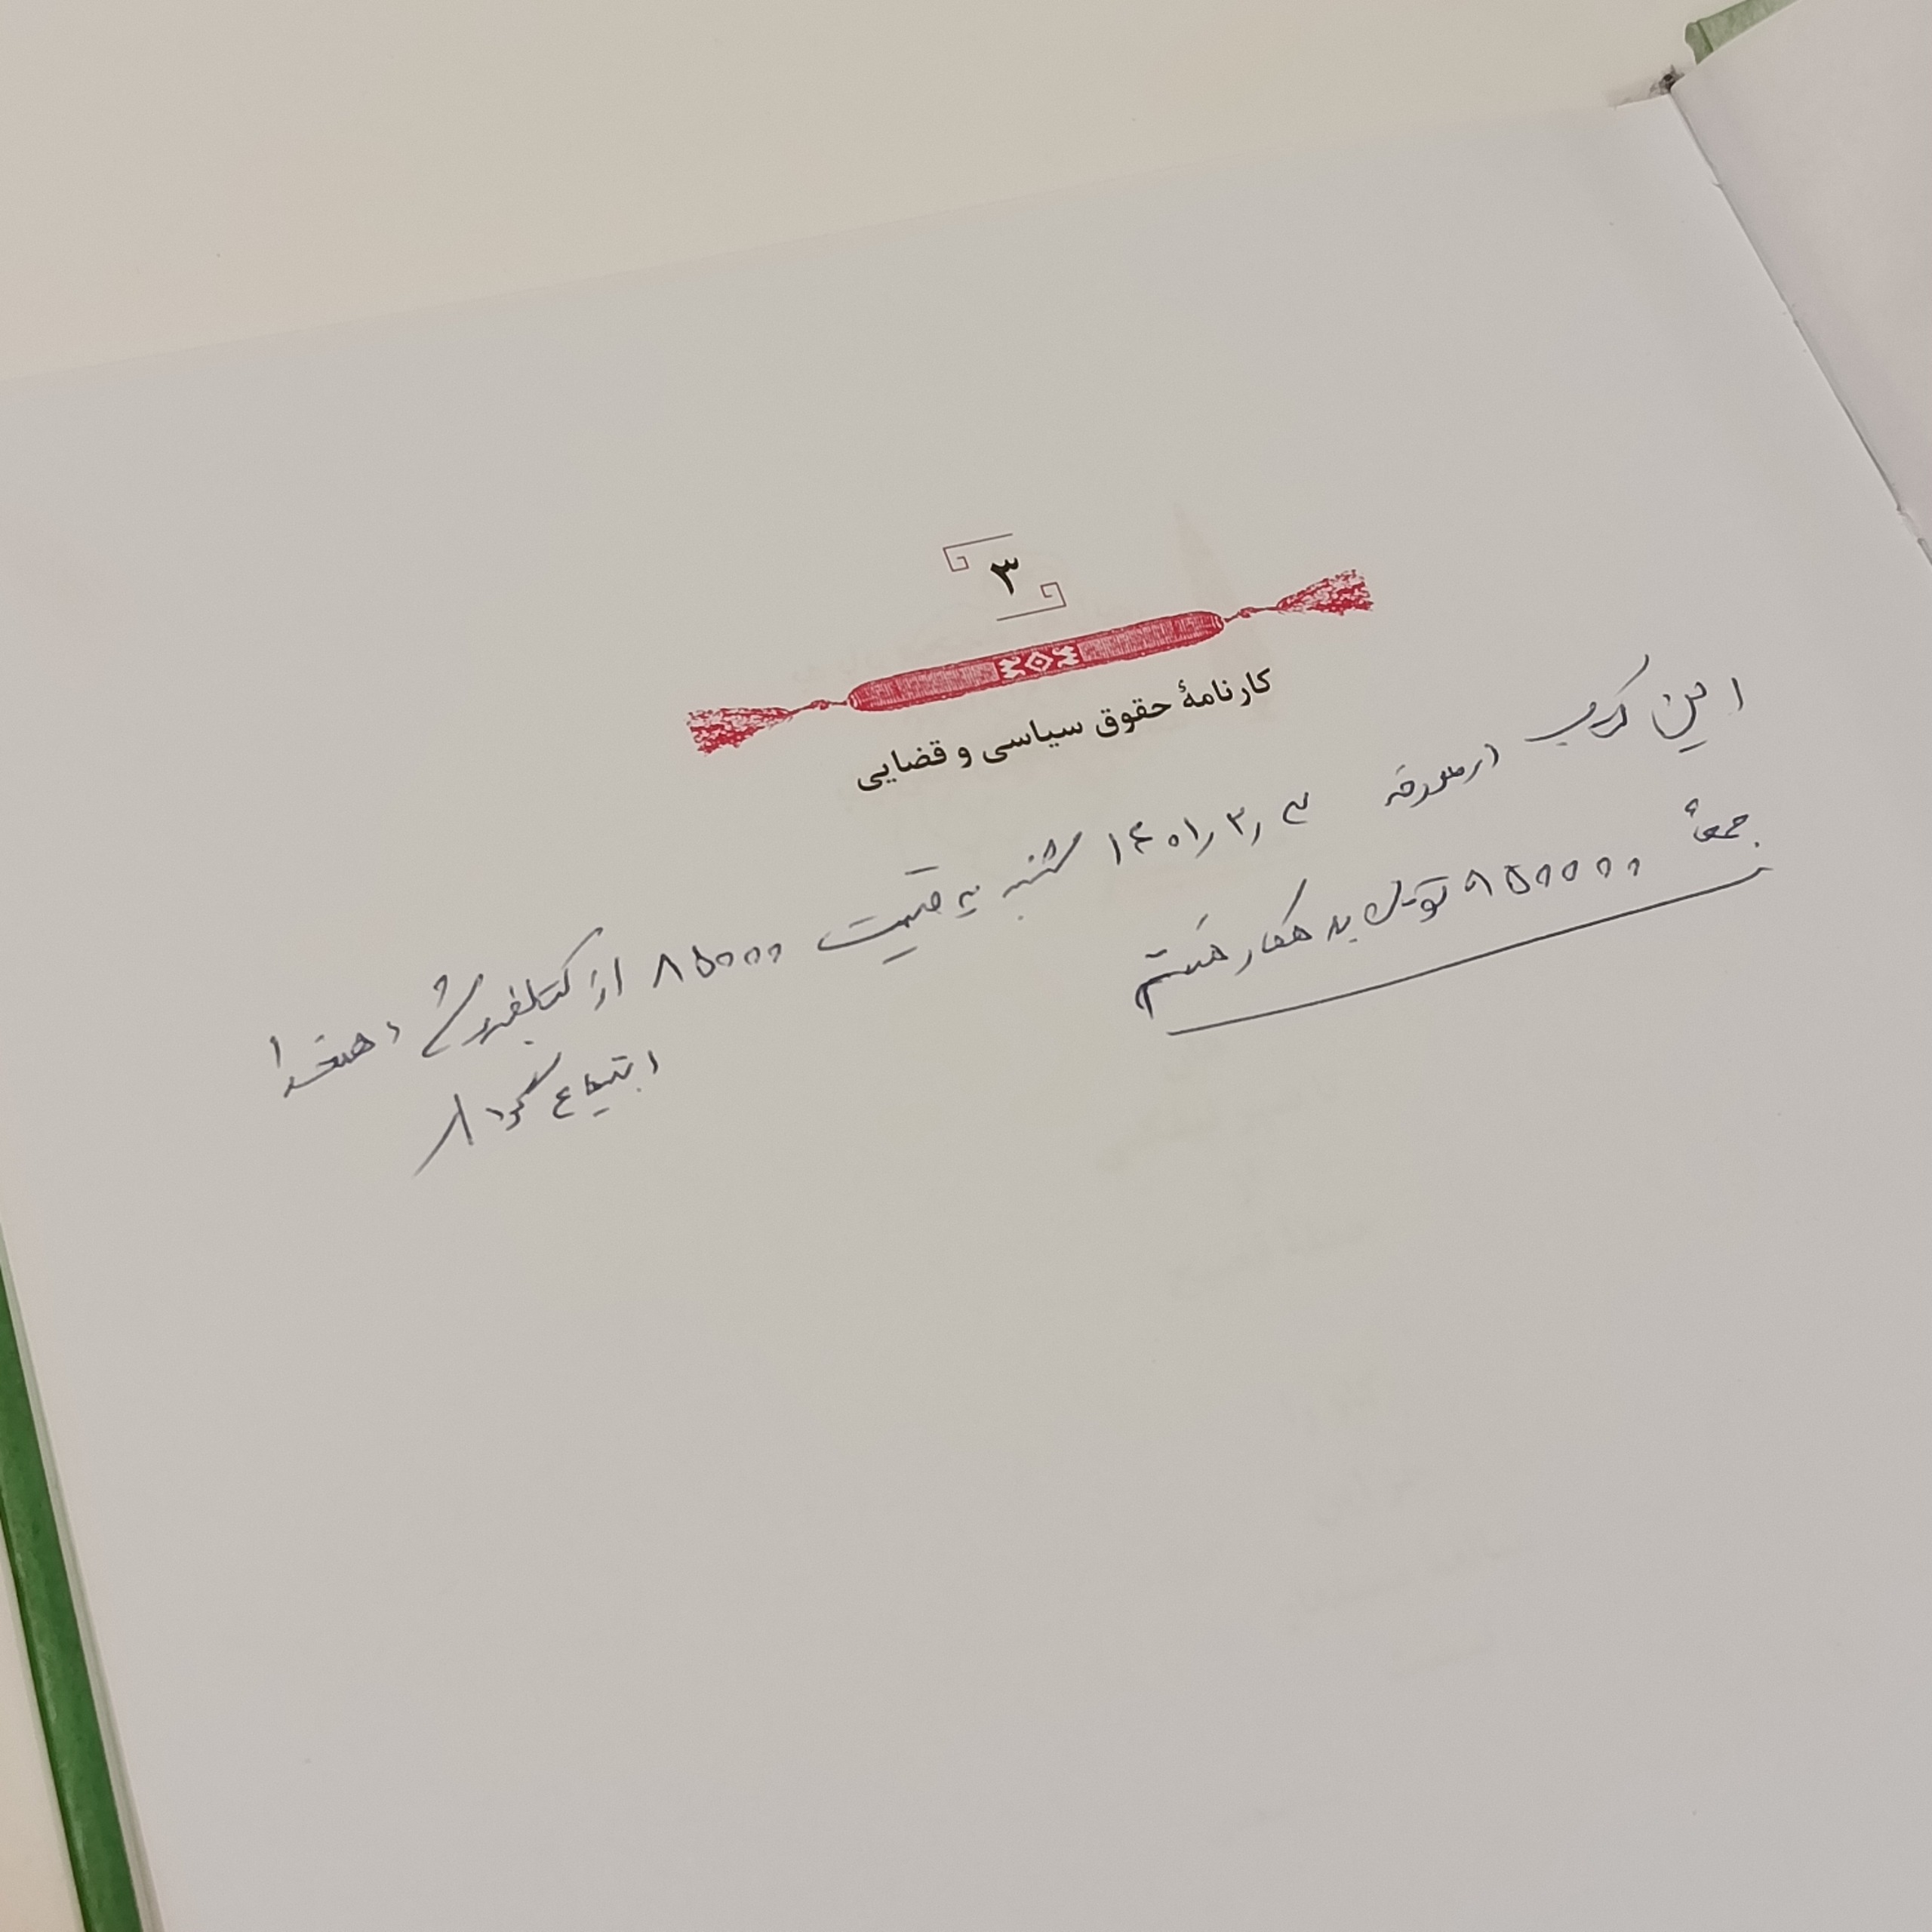 ۳
کارنامهٔ حقوق سیاسی و قضایی
این کتاب در مورخه ۱۴۰۱/۳/۳ سه‌شنبه به قیمت ۸۵۰۰۰ از کتابفروشی دهخدا
ابتیاع کردم
جمعاً ۸۵۰۰۰۰ تومان بدهکار هستم